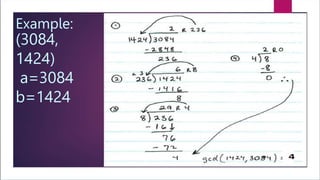 Example:
(3084,
1424)
a=3084
b=1424
① 2 R 236
1424)3084
-2848
236
② 6 R 8
236)1424
-1416
8
③ 29 R 4
8)236
-16↓
76
-72
4
④ 2 R 0
4)8
-8
0 ∴
gcd(1424,3084) = 4